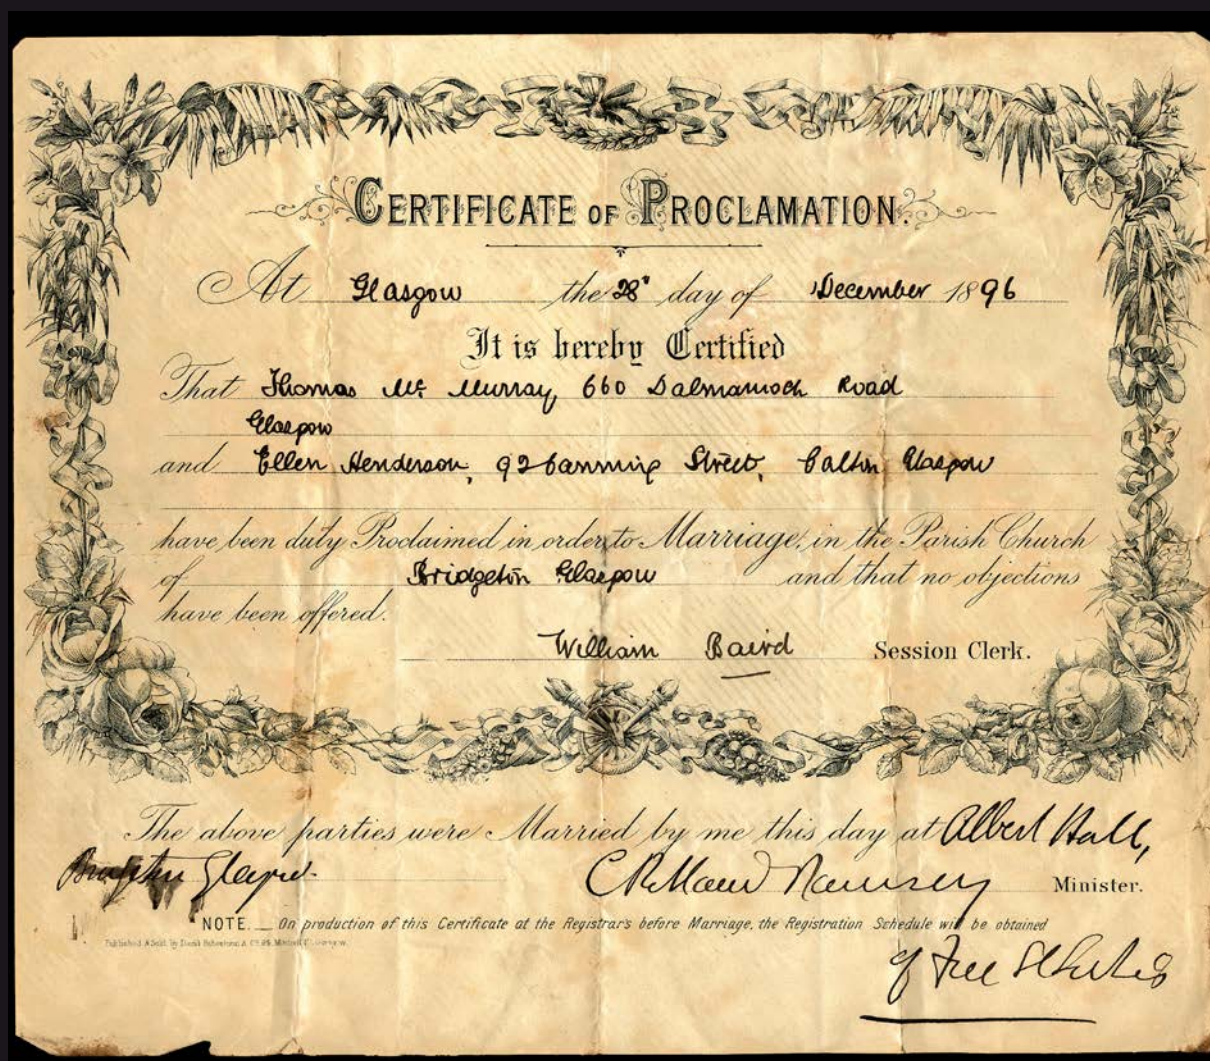 CERTIFICATE OF PROCLAMATION.
At Glasgow the 28" day of December 1896
It is hereby Certified
That Thomas Mc Murray, 660 Dalmarnock Road
Glasgow
and Ellen Henderson, 92 Canning Street, Calton Glasgow
have been duly Proclaimed in order to Marriage, in the Parish Church
of Bridgeton Glasgow and that no objections
have been offered.
William Baird Session Clerk.
The above parties were Married by me this day at Albert Hall,
Glasgow. Ramsey Minister.
NOTE.__ On production of this Certificate at the Registrar's before Marriage, the Registration Schedule will be obtained
Published & Sold by David Robertson & Co.
of Free St